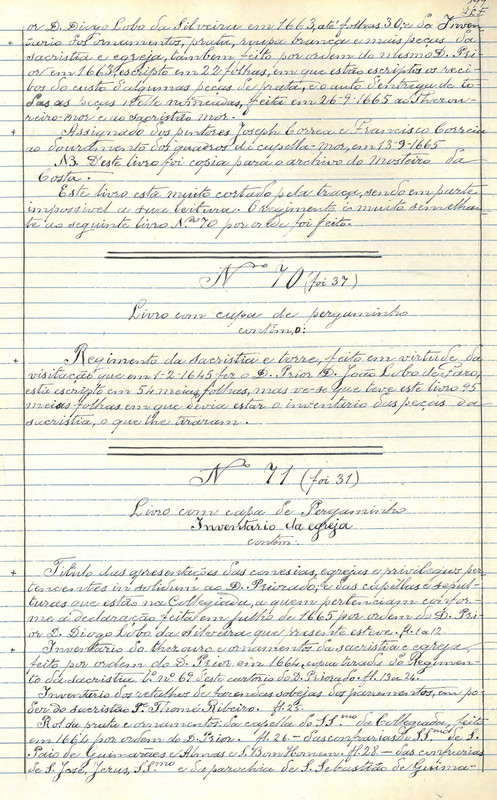 or D. Diogo Lobo da Silveira em 1663, até folhas 30; e da Inven-
tario dos ornamentos, prata, roupa branca e mais peças da
sacristia e egreja, tambem feito por ordem do mesmo D. Pri-
or em 1663, escripto em 22 folhas, em que estão escriptos os reci-
bos do custo d'algumas peças de prata, e o auto d'entrega de to-
das as peças n'elle nomeadas, feita em 26-9-1665 ao Thesou-
reiro-mor e ao sacristão mor.
Assignado dos pintores Joseph Correa e Francisco Correia
ao douramento dos quadros da capella-mor, em 13-9-1665
N.B. D'este livro foi copia para o archivo do Mosteiro da
Costa.
Este livro está muito cortado pela traça, sendo em parte
impossivel a sua leitura. O regimento é muito semelhan-
te ao seguinte livro N.º 70 por onde foi feito.
Nº 70 (foi 37)
Livro com capa de pergaminho
contém,o:
Regimento da sacristia e torre, feito em virtude da
visitação que em 1-2-1645 fez o D. Prior D. João Lobo de Faro,
está escripto em 54 meias folhas, mas ve-se que teve este livro 95
meias-folhas em que devia estar o inventario das peças da
sacristia, o que lhe tiraram.
Nº 71 (foi 31)
Livro com capa de Pergaminho
Inventario da egreja
contem:
Titulo das apresentações das conesias, egrejas e privilegios per-
tencentes in solidum ao D. Priorado; e das capellas e sepul-
turas que estão na Collegiada, a quem pertenciam confor-
me a declaração feita em julho de 1665 por ordem do D. Pri-
or D. Diogo Lobo da Silveira que presente esteve. fl. 1 a 12
Inventario do thezouro e ornamentos da sacristia e egreja,
feito por ordem do D. Prior em 1664, copia tirada do Regimen-
to da sacristia L.º N.º 69 deste cartorio do D. Priorado. fl. 13 a 24.
Inventario dos retalhos de fazendas sobejos dos paramentos, em po-
der do sacristão P.e Thomé Ribeiro. fl. 25.
Rol da prata e ornamentos da capella do S.S.mo da Collegiada, feito
em 1664 por ordem do D. Prior. fl. 26. – das confrarias do S.S.mo de S.
Paio de Guimarães e Almas e S. Bom Homem. fl. 28 – das confrarias
de S. José, Jesus, S.S.mo e da parochia de S. Sebastião de Guima-